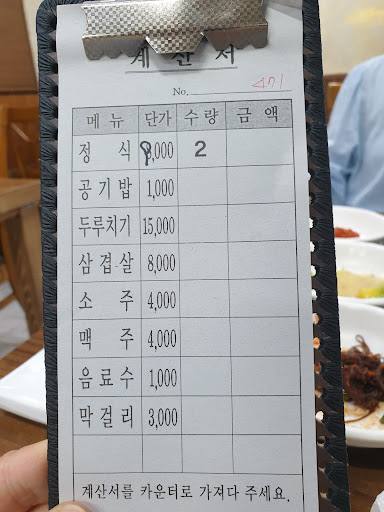 계산서
No.
메뉴 단가 수량 금액
정식 9,000 2
공기밥 1,000
두루치기 15,000
삼겹살 8,000
소주 4,000
맥주 4,000
음료수 1,000
막걸리 3,000
계산서를 카운터로 가져다 주세요.